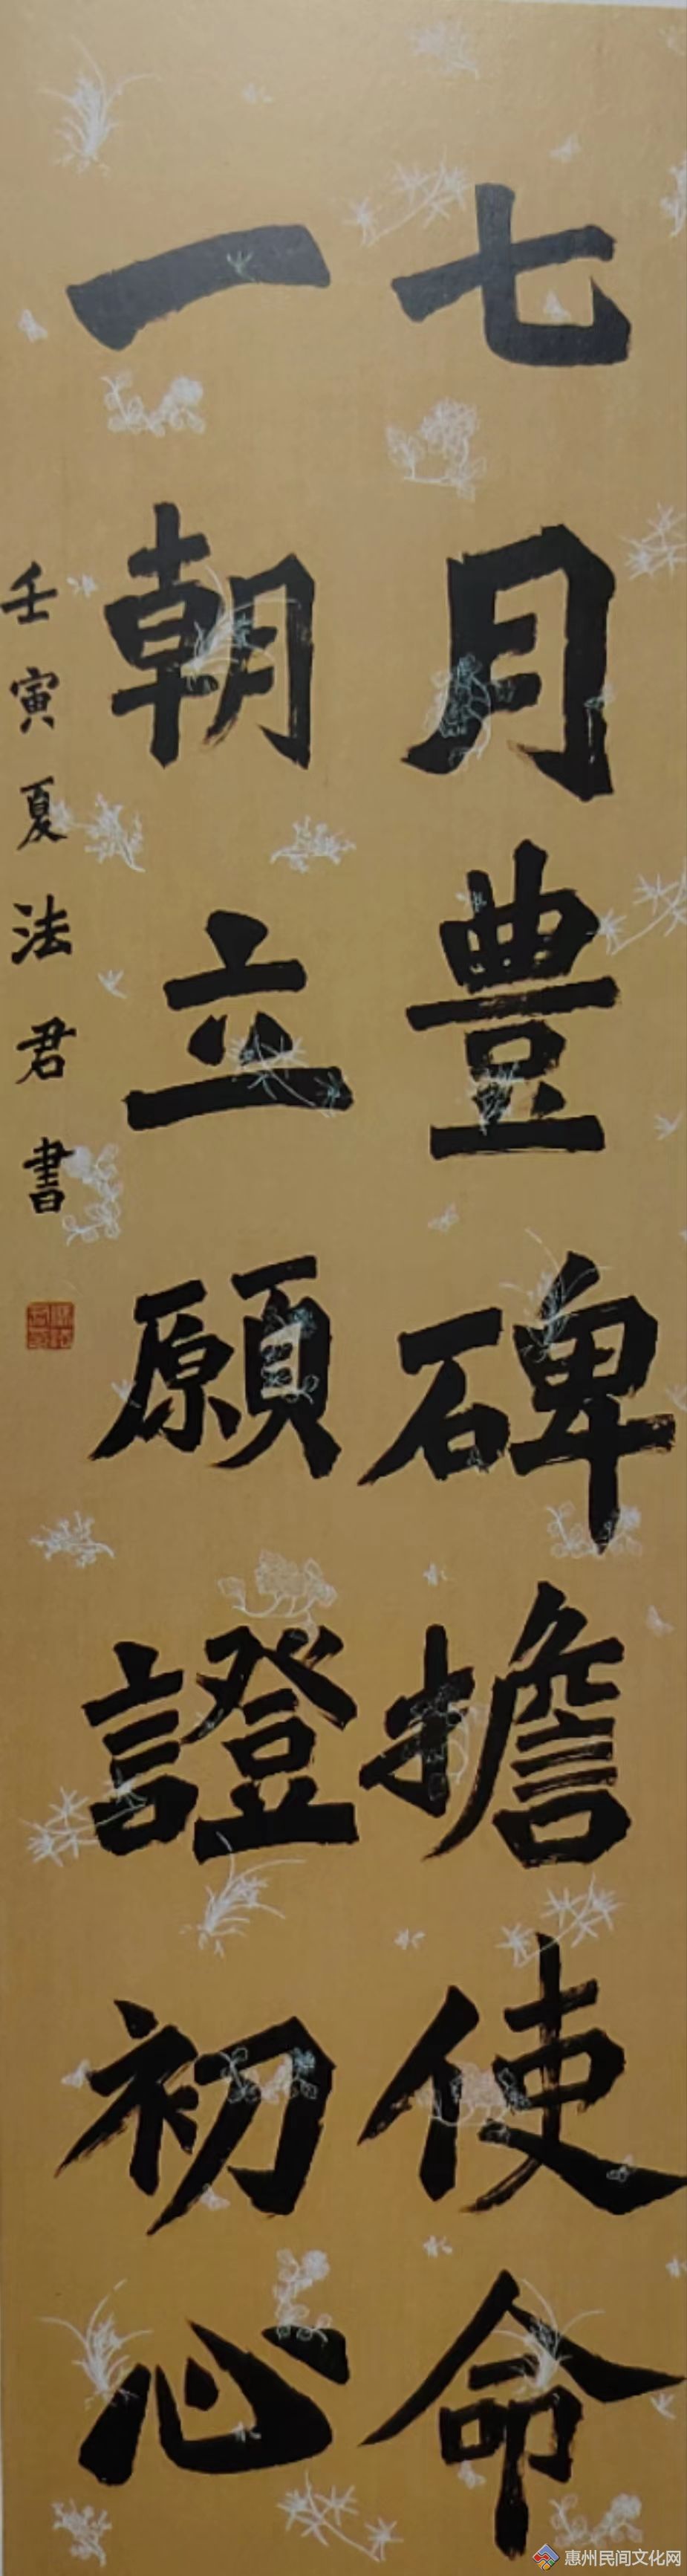 七月豊碑擔使命
一朝立願證初心
壬寅夏法君書
惠州民间文化网